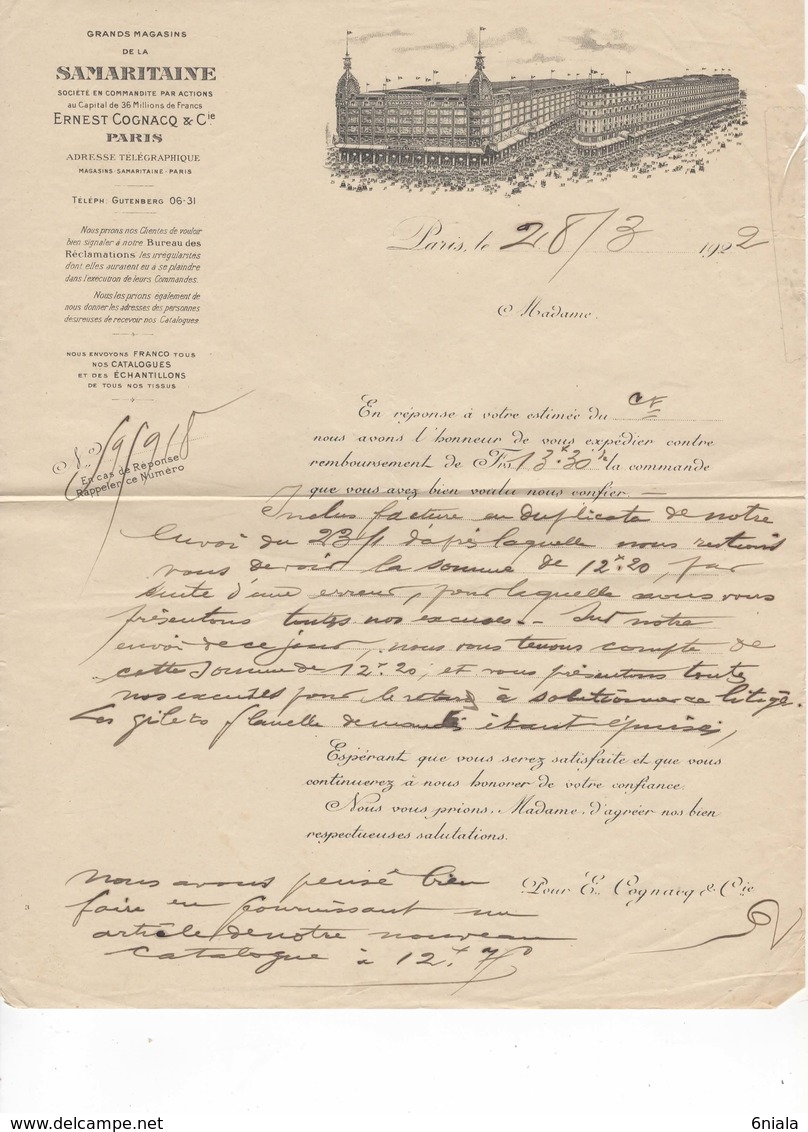 GRANDS MAGASINS
DE LA
SAMARITAINE
SOCIÉTÉ EN COMMANDITE PAR ACTIONS
au Capital de 36 Millions de Francs
ERNEST COGNACQ & Cie
PARIS
ADRESSE TÉLÉGRAPHIQUE
MAGASINS-SAMARITAINE-PARIS
TÉLÉPH: GUTENBERG 06-31
Nous prions nos Clientes de vouloir
bien signaler à notre Bureau des
Réclamations les irrégularités
dont elles auraient eu à se plaindre
dans l'exécution de leurs Commandes.
Nous les prions également de
nous donner les adresses des personnes
désireuses de recevoir nos Catalogues
NOUS ENVOYONS FRANCO TOUS
NOS CATALOGUES
ET DES ÉCHANTILLONS
DE TOUS NOS TISSUS
Paris, le 28/3 1922
Madame.
No
En cas de Réponse
Rappeler ce Numéro
En réponse à votre estimée du
nous avons l'honneur de vous expédier contre
remboursement de Frs 13.30 la commande
que vous avez bien voulu nous confier. —
Inclus facture en duplicata de notre
envoi du 23/1 d'après laquelle nous restions
vous devoir la somme de 12f.20, par
suite d'une erreur, pour laquelle nous vous
présentons toutes nos excuses. - Sur notre
envoi de ce jour, nous vous tenons compte de
cette somme de 12f.20, et vous présentons toutes
nos excuses pour le retard à solutionner ce litige.
Les gilets flanelle demandés étant épuisés,
Espérant que vous serez satisfaite et que vous
continuerez à nous honorer de votre confiance.
Nous vous prions, Madame, d'agréer nos bien
respectueuses salutations.
Pour E. Cognacq & Cie
nous avons pensé bien
faire en fournissant un
article de notre nouveau
catalogue à 12f.70
3
6niala